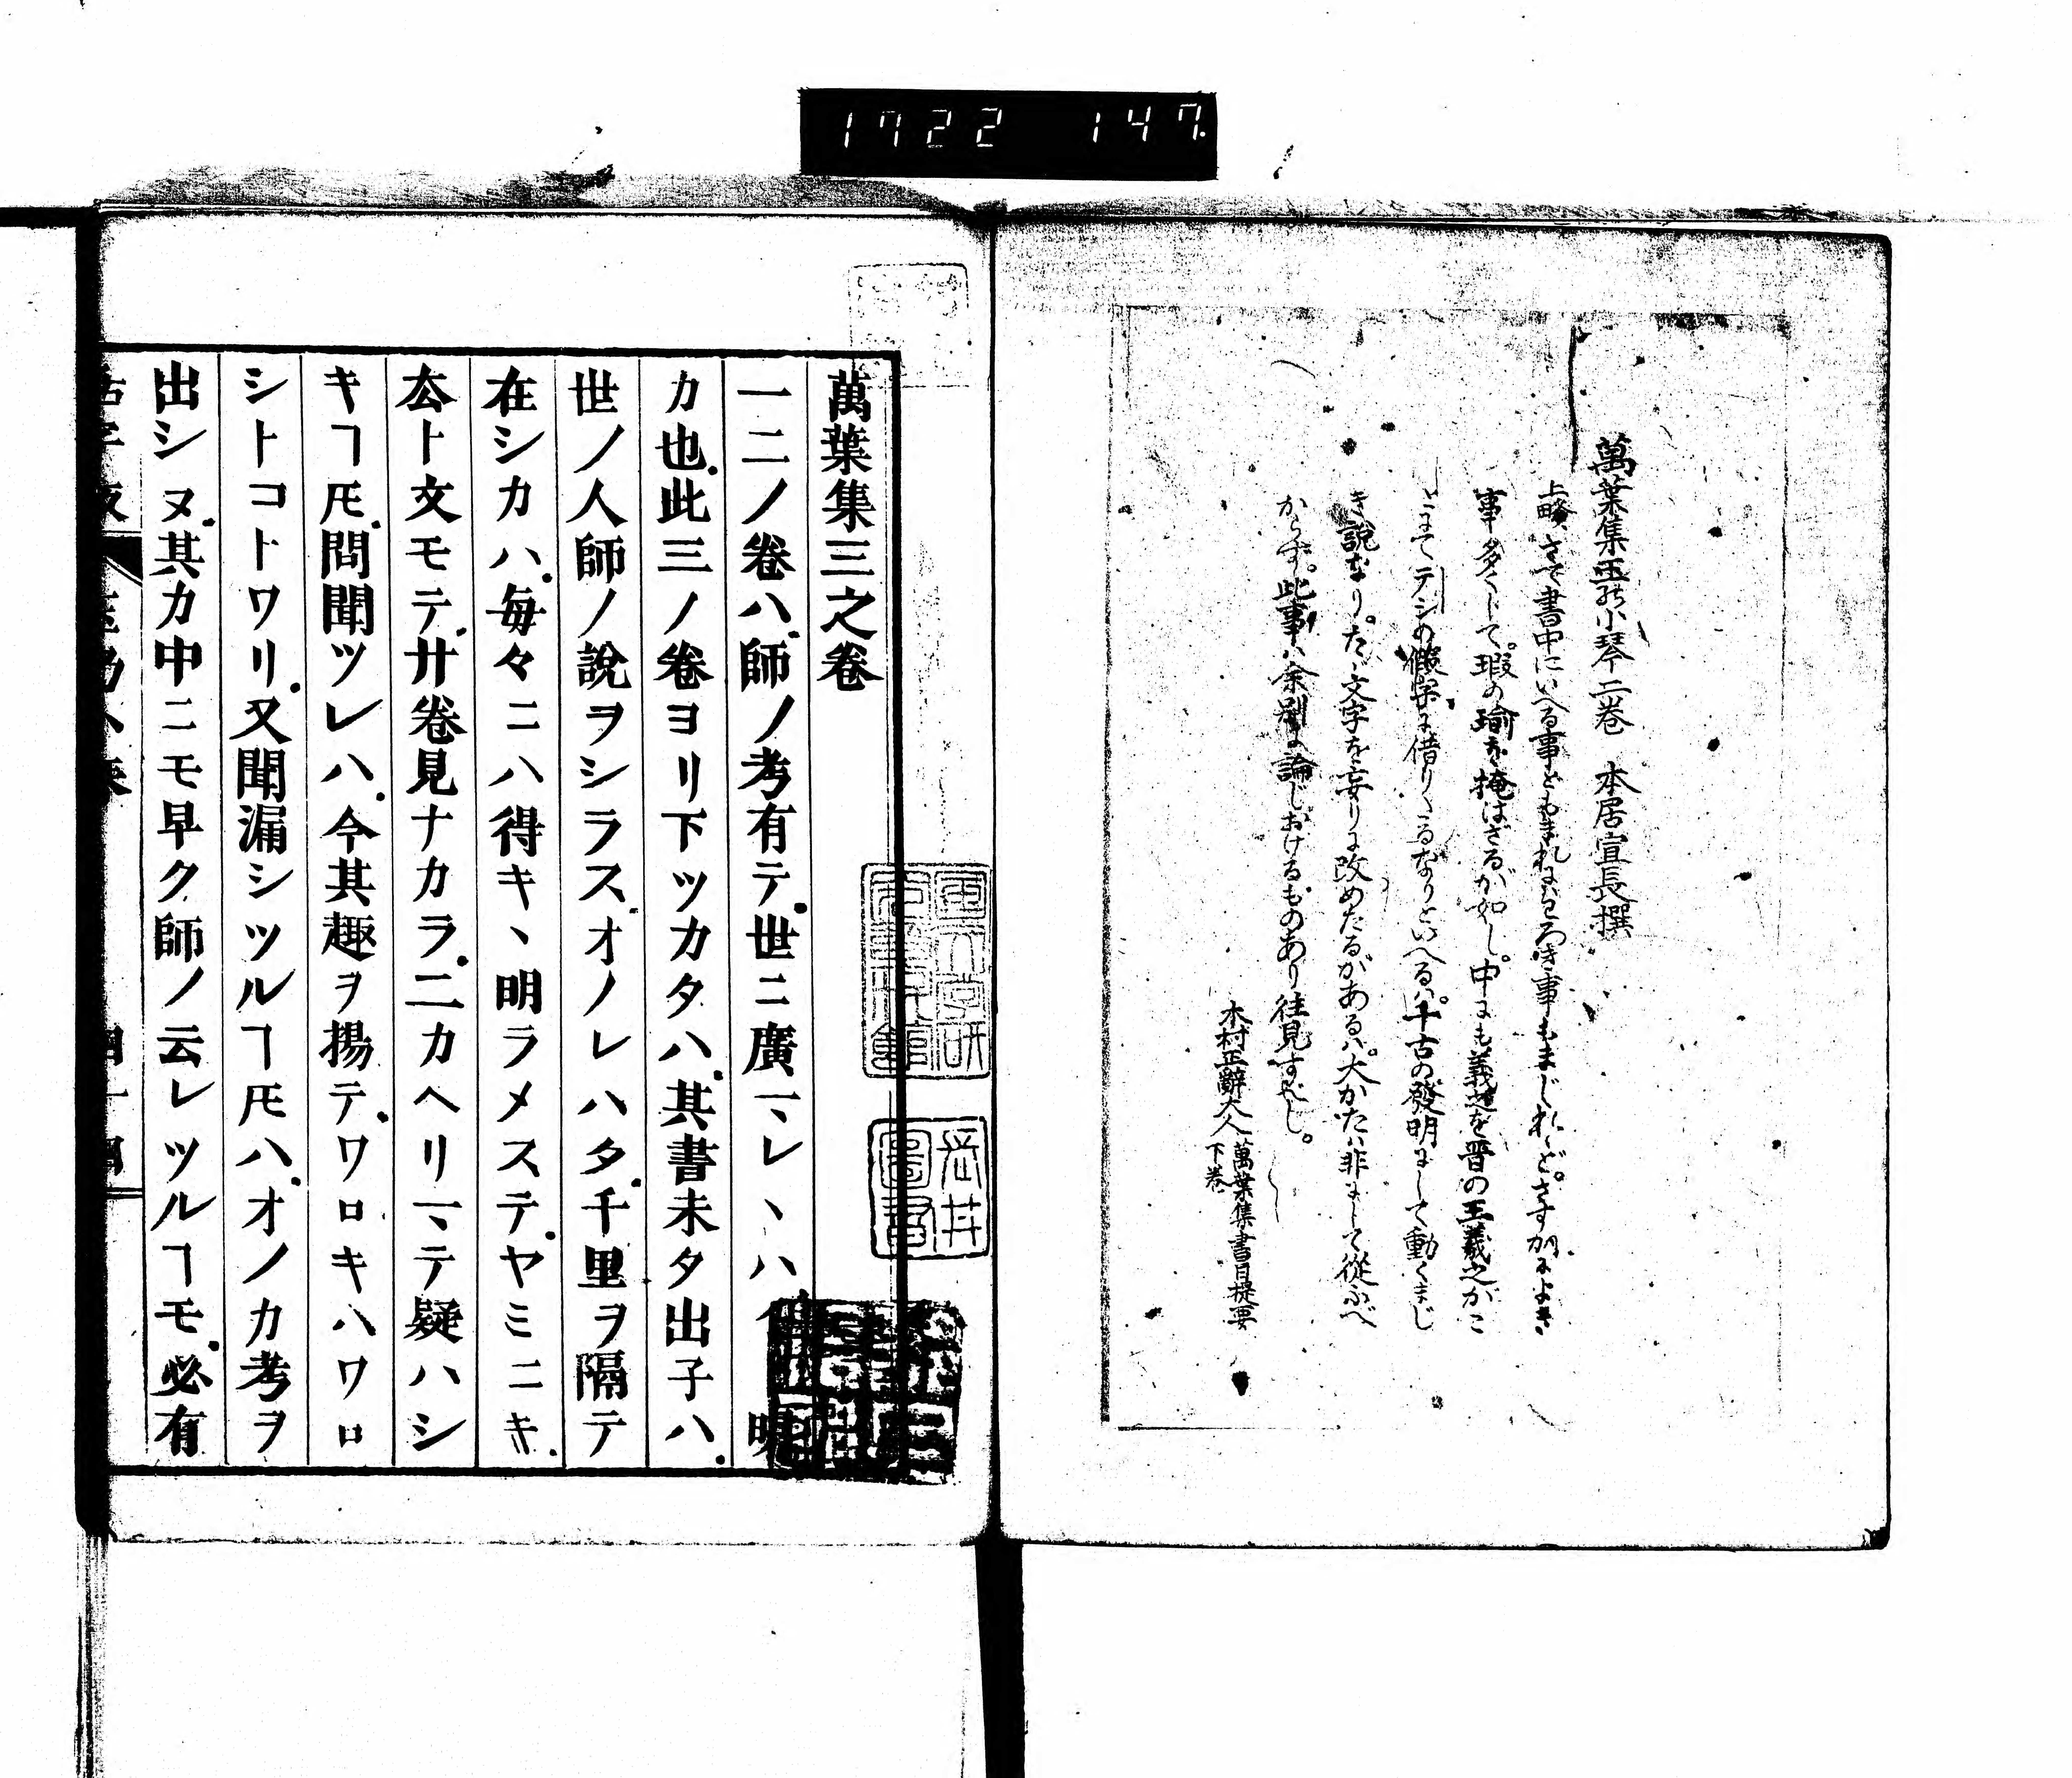 1722 147
萬葉集玉の小琴 二卷 本居宣長撰
上略 さて書中にいへる事どもまれにはわろき事もまじれゝど。さすがによき
事多くして。瑕の瑜を掩はざるが如し。中にも義之を晋の王羲之がこ
とにてテシの假字に借りたるなりといへるは。千古の發明にして動くまじ
き説なり。たゞ文字を妄りに改めたるがあるは。大かたは非にして從ふべ
からず。此事は余別に論じおけるものあり往見すべし。
木村正辭大人 萬葉集書目提要
下卷
萬葉集三之卷
一二ノ卷ハ師ノ考有テ世ニ廣
カ也此三ノ卷ヨリ下ツカタハ其書未タ出子ハ
世ノ人師ノ說ヲシラスオノレハタ千里ヲ隔テ
在シカハ毎々ニハ得キヽ明ラメステヤミニキ
厺ト文モテ廿卷見ナカラ二カヘリマテ疑ハシ
キヿ𪜈問聞ツレハ今其趣ヲ揚テワロキハワロ
シトコトワリ又聞漏シツルヿ𪜈ハオノカ考ヲ
出シヌ其カ中ニモ早ク師ノ云レツルヿモ必有